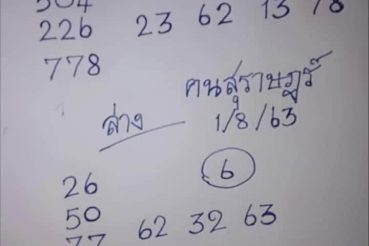 504
226 23 62 13 78
778
คนสุราษฎร์
ล่าง 1/8/63
6
26
50 62 32 63
77